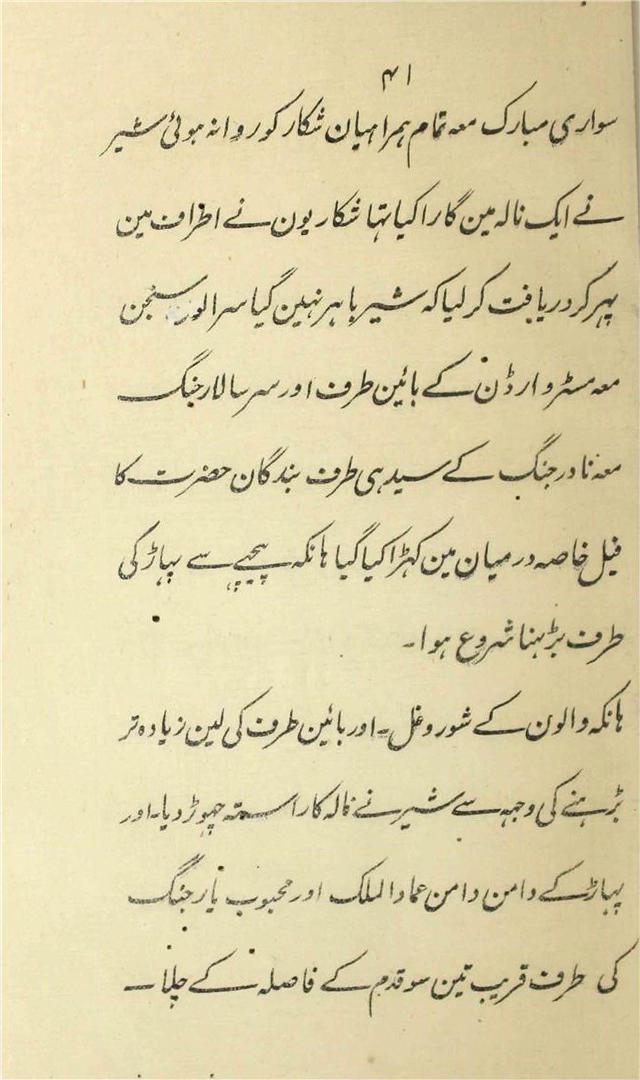 ۴۱
سواری مبارک معہ تمام ہمراہیان شکار کو روانہ ہوئی شیر
نے ایک نالہ مین گارا کیا تہا شکاریون نے اطراف مین
پہر کر دریافت کر لیا کہ شیر باہر نہین گیا سرالور سنجن
معہ مسٹر وارڈن کے بائین طرف اور سر سالار جنگ
معہ نادر جنگ کے سیدہی طرف بندگان حضرت کا
فیل خاصہ درمیان مین کہڑا کیا گیا ہانکہ پیچہے سے پہاڑ کی
طرف بڑہنا شروع ہوا۔
ہانکہ والون کے شور و غل۔ اور بائین طرف کی لین زیادہ تر
بڑہنے کی وجہہ سے شیر نے نالہ کا راستہ چہوڑ دیا۔ اور
پہاڑ کے دامن دامن عماد الملک اور محبوب یار جنگ
کی طرف قریب تین سو قدم کے فاصلہ کے چلا۔